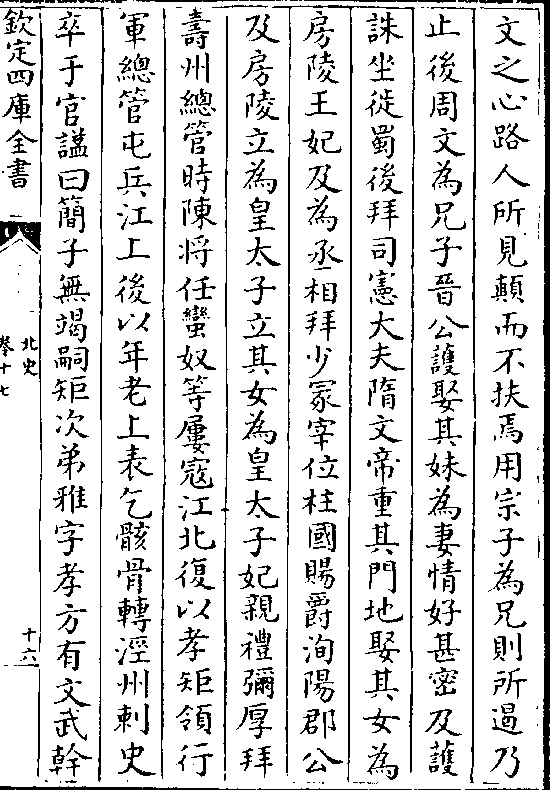 文之心路人所見顛而不扶焉用宗子為兄則所過乃
止後周文為兄子晉公護娶其妹為妻情好甚密及護
誅坐徙蜀後拜司憲大夫隋文帝重其門地娶其女為
房陵王妃及為丞相拜少冢宰位柱國賜爵洵陽郡公
及房陵立為皇太子立其女為皇太子妃親禮彌厚拜
壽州總管時陳將任蠻奴等屢寇江北復以孝矩領行
軍總管屯兵江上後以年老上表乞骸骨轉涇州刺史
卒于官諡曰簡子無竭嗣矩次弟雅字孝方有文武幹
欽定四庫全書
北史
卷十七
十六